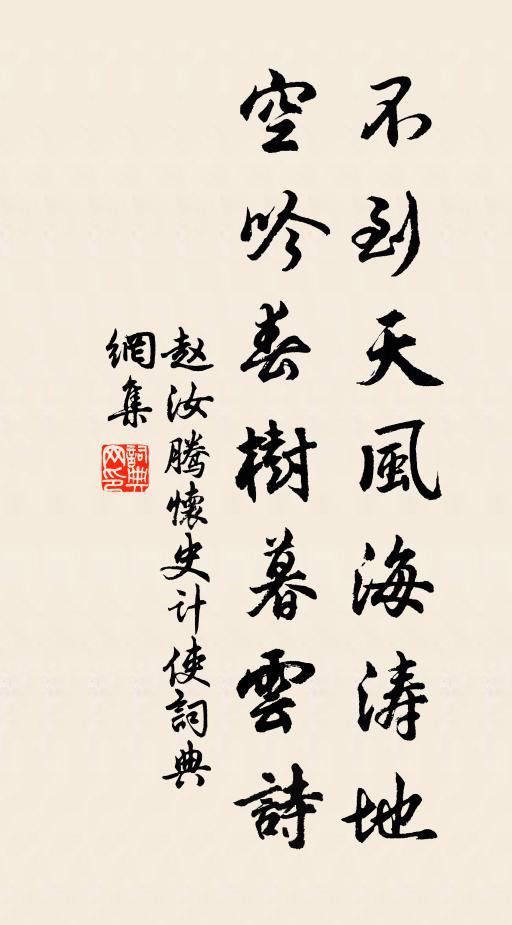 不到天風海涛地
空吟春樹暮雲詩
赵汝腾懷史计使詞典
網集
詞典
网印